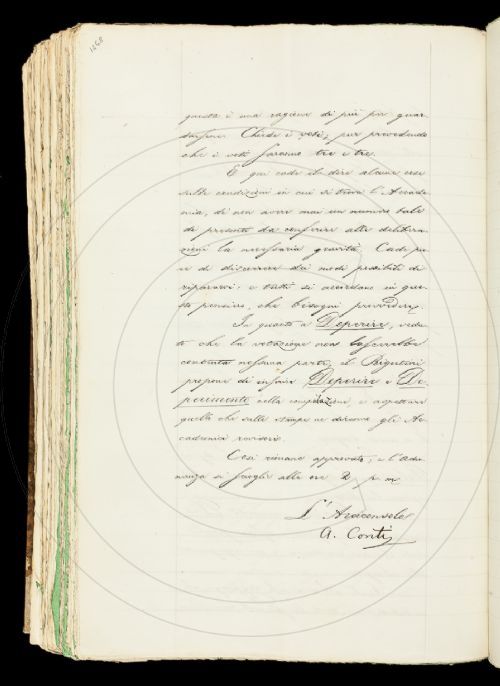 1268
questa è una ragione di più per guar
darsene. Chiede i voti, pur prevedendo
che i voti saranno tre e tre.
E qui cade il dire alcune cose
sulle condizioni in cui si trova l'Accade
mia, di non avere mai un numero tale
di presenti da conferire alle delibera
zioni la necessaria gravità. Cade pu
re di discorrere dei modi possibili di
ripararvi: e tutti si accordano in que
sto pensiero, che bisogni provvedere.
In quanto a Deperire, vedu
to che la votazione non lascerebbe
contenta nessuna parte, il Rigutini
propone di inserir Deperire e De
perimento nella compilazione, e aspettare
quello che sulle stampe ne diranno gli Ac
cademici revisori.
Così rimane approvato; e l'Adu
nanza si scioglie alle ore 2 p. m.
L'Arciconsolo
A. Conti